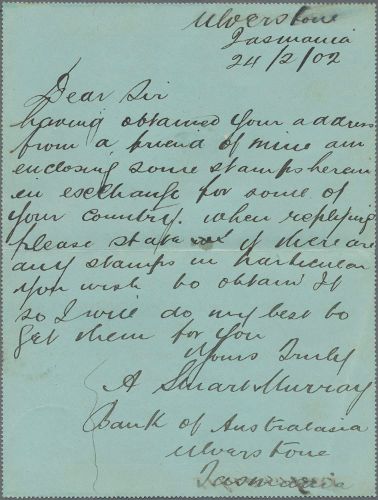 Ulverstone
Tasmania
24/2/02
Dear Sir
having obtained your address
from a friend of mine am
enclosing some stamps herein
in exchange for some of
your country. when replying
please state if there are
any stamps in particular
you wish to obtain If
so I will do my best to
get them for you
Yours Truly
A Smart Murray
Bank of Australasia
Ulverstone
Tasmania